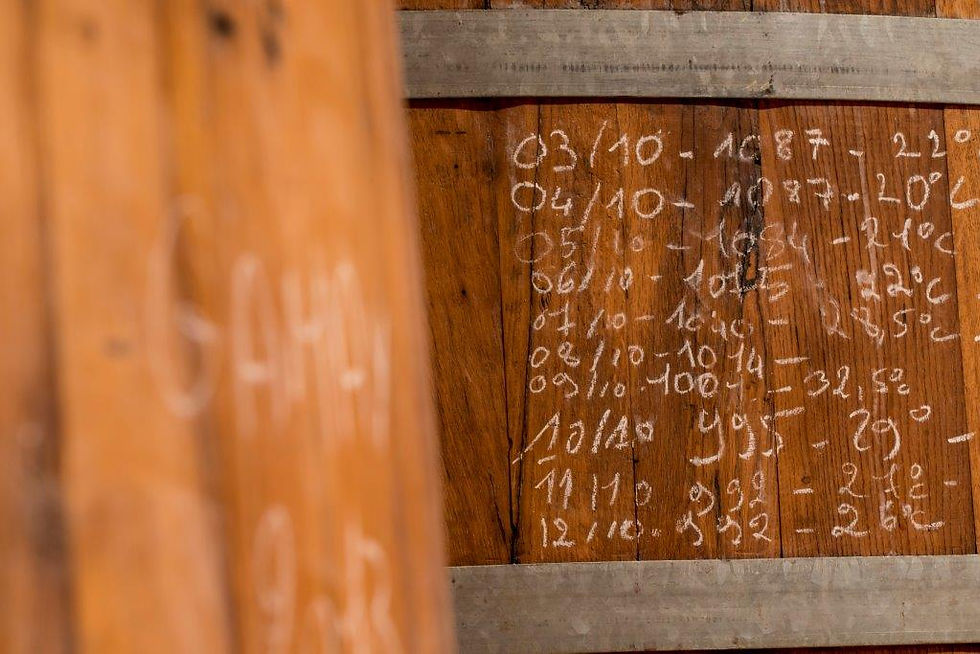 GAMA
03/10 - 1087 - 22°
04/10 - 1087 - 20°C
05/10 - 1084 - 21°C
06/10 - 1075 22°C
07/10 - 1040 - 28,5°C
08/10 - 1014 -
09/10 - 1001 - 32,5°
10/10 995 - 29° -
11/10 992 - 27° -
12/10 992 - 26°C